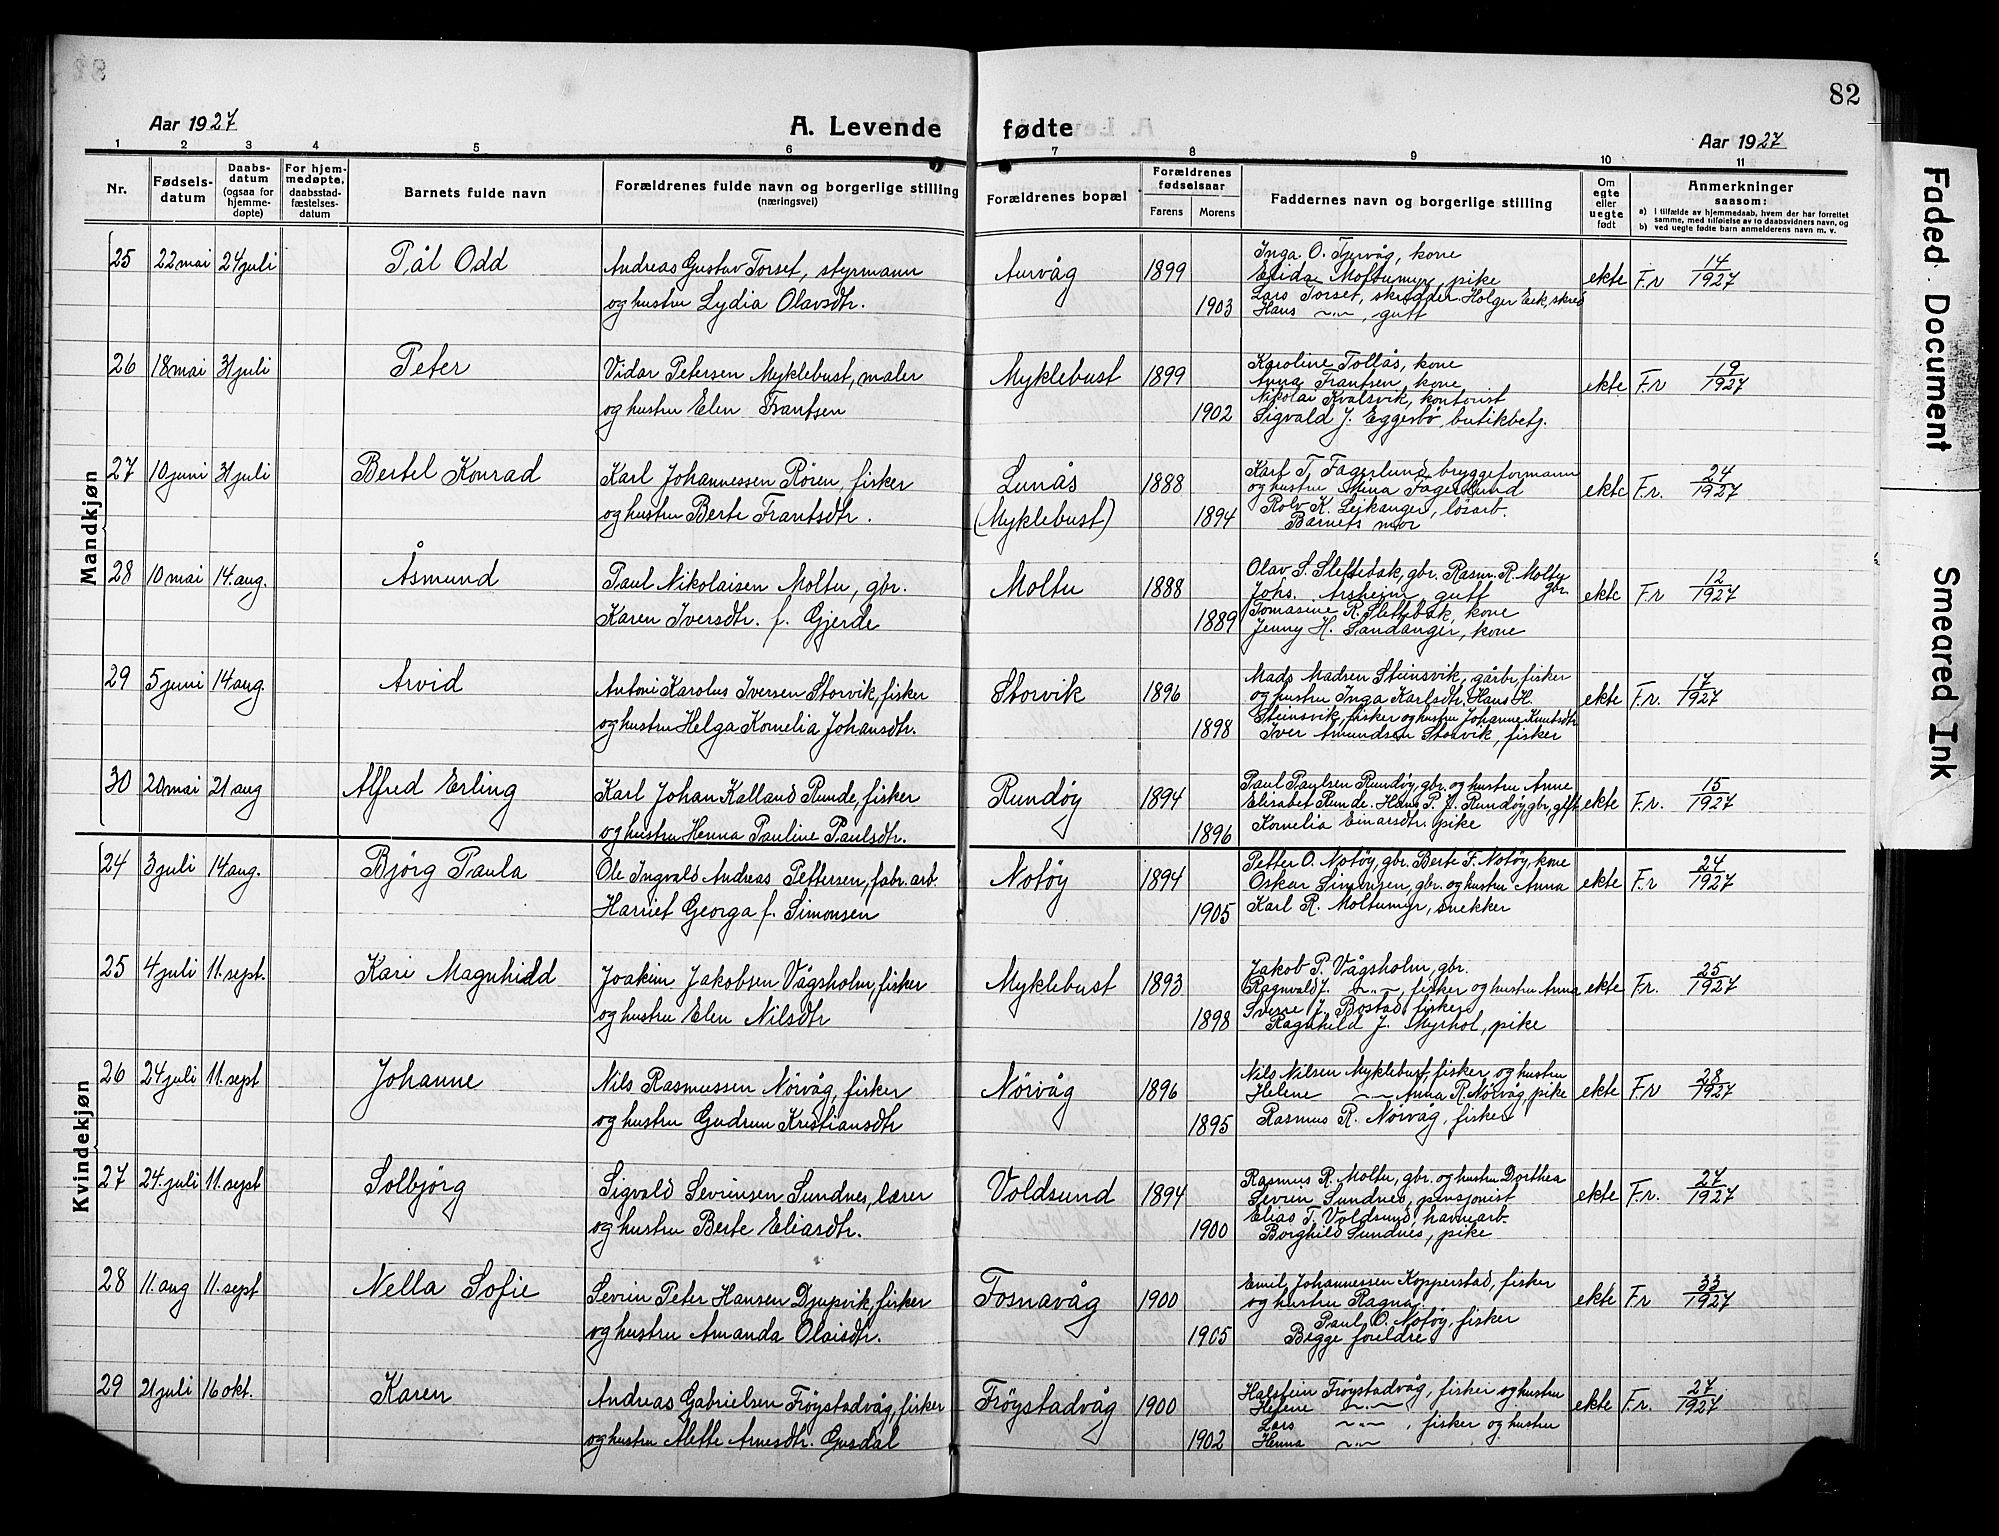 82
Aar 1927
A. Levende fødte
Aar 1927
1 2 3 4 5 6 7 8 9 10 11
Nr.
Fødsels-
datum
Daabs-
datum
(ogsaa for
hjemme-
døpte)
For hjem-
medøpte,
daabsstad-
fæstelses-
datum
Barnets fulde navn
Forældrenes fulde navn og borgerlige stilling
(næringsvei)
Forældrenes bopæl
Forældrenes
fødselsaar
Farens Morens
Faddernes navn og borgerlige stilling
Om
egte
eller
uegte
født
Anmerkninger
saasom:
a) I tilfælde av hjemmedaab, hvem der har forrettet
samme, med tilføielse av to daabsvidners navn, og
b) ved uegte fødte barn anmelderens navn m. v.
Mandkjøn
25 22 mai 24 juli Pål Odd
Andreas Gustav Torset, styrmann
og hustru Lydia Olavsdtr.
Aurvåg 1899
1903
Inga O. Tjervåg, kone
Elida Moltumyr, pike
Lars Torset, skredder. Holger Eek, skred
Hans -"-, gutt
ekte F.r 14/1927
26 18 mai 31 juli Peter
Vidar Petersen Myklebust, maler
og hustru Elen Frantsen
Myklebust 1899
1902
Karoline Tollås, kone
Anna Frantsen, kone
Nikolai Kvalsvik, kontorist
Sigvald J. Eggesbø, butikbetj.
ekte F.r 19/1927
27 10 juni 31 juli Bertel Konrad
Karl Johannessen Røren, fisker
og hustru Berte Frantsdtr.
Lunås
(Myklebust)
1888
1894
Karl T. Fagerlund, bryggeformann
og hustru Mina Fagerlund
Rolv K. Leikanger, løsarb.
Barnets mor
ekte F.r. 24/1927
28 10 mai 14. aug. Åsmund
Paul Nikolaisen Moltu, gbr.
Karen Iversdtr. f. Gjerde
Moltu 1888
1889
Olav S. Slettebak, gbr. Rasm. R. Moltu
Johs. Årsheim, gutt gbr.
Tomasine R. Slettebak, kone
Jenny H. Sandanger, kone
ekte F.r 12/1927
29 5 juni 14 aug. Arvid
Antoni Karolus Iversen Storvik, fisker
og hustru Helga Kornelia Johansdtr.
Storvik 1896
1898
Mads Madsen Steinsvik, gårbr, fisker
og hustru Inga Karlsdtr, Hans H.
Steinsvik, fisker og hustru Johanne Knutsdtr
Iver Amundsen Storvik, fisker
ekte F.r. 17/1927
30 20 mai 21 aug Alfred Erling
Karl Johan Kalland Runde, fisker
og hustru Henna Pauline Paulsdtr.
Rundøy 1894
1896
Paul Paulsen Rundøy gbr. og hustru Anne
Elisabet Runde. Hans P. J. Rundøy gbr, gift
Kornelia Einarsdtr. pike
ekte F.r. 15/1927
Kvindekjøn
24 3 juli 14 aug. Bjørg Paula
Ole Ingvald Andreas Pettersen, fabr. arb.
Harriet Georga f. Simonsen
Notøy 1894
1905
Petter O. Notøy, gbr. Berte F. Notøy, kone
Oskar Simonsen, gbr. og hustru Anna
Karl R. Moltumyr, snekker
ekte F.r 24/1927
25 4 juli 11. sept. Kari Magnhild
Joakim Jakobsen Vågsholm, fisker
og hustru Elen Nilsdtr
Myklebust 1893
1898
Jakob P. Vågsholm, gbr.
Ragnvald J. -"-, fisker og hustru Anna
Sverre J. Bostad, fisker
Ragnhild J. Myrhol, pike
ekte F.r. 25/1927
26 24 juli 11. sept Johanne
Nils Rasmussen Nørvåg, fisker
og hustru Gudrun Kristiansdtr
Nørvåg 1896
1895
Nils Nilsen Myklebust, fisker og hustru
Helene -"- Anna R. Nørvåg, pike
Rasmus R. Nørvåg, fisker
ekte F.r 28/1927
27 24. juli 11. sept Solbjørg
Sigvald Sevrinsen Sundnes, lærer
og hustru Berte Eliasdtr.
Voldsund 1894
1900
Rasmus R. Moltu, gbr. og hustru Dorthea
Sevrin Sundnes, pensjonist
Elias T. Voldsund, havnearb.
Borghild Sundnes, pike
ekte F.r. 27/1927
28 11. aug 11. sept Nella Sofie
Sevrin Peter Hansen Djupvik, fisker
og hustru Amanda Olaisdtr.
Fosnavåg 1900
1905
Emil Johannessen Kopperstad, fisker
og hustru Ragna.
Paul O. Notøy, fisker
Begge foreldre
ekte Fr 33/1927
29 21 juli 16 okt. Karen
Andreas Gabrielsen Frøystadvåg, fisker
og hustru Alette Arnesdtr. Gusdal
Frøystadvåg 1900
1902
Halstein Frøystadvåg, fisker og hustru
Helene -"-
Lars -"-, fisker og hustru
Henna -"-
ekte F.r. 27/1927
Faded Document
Smeared Ink